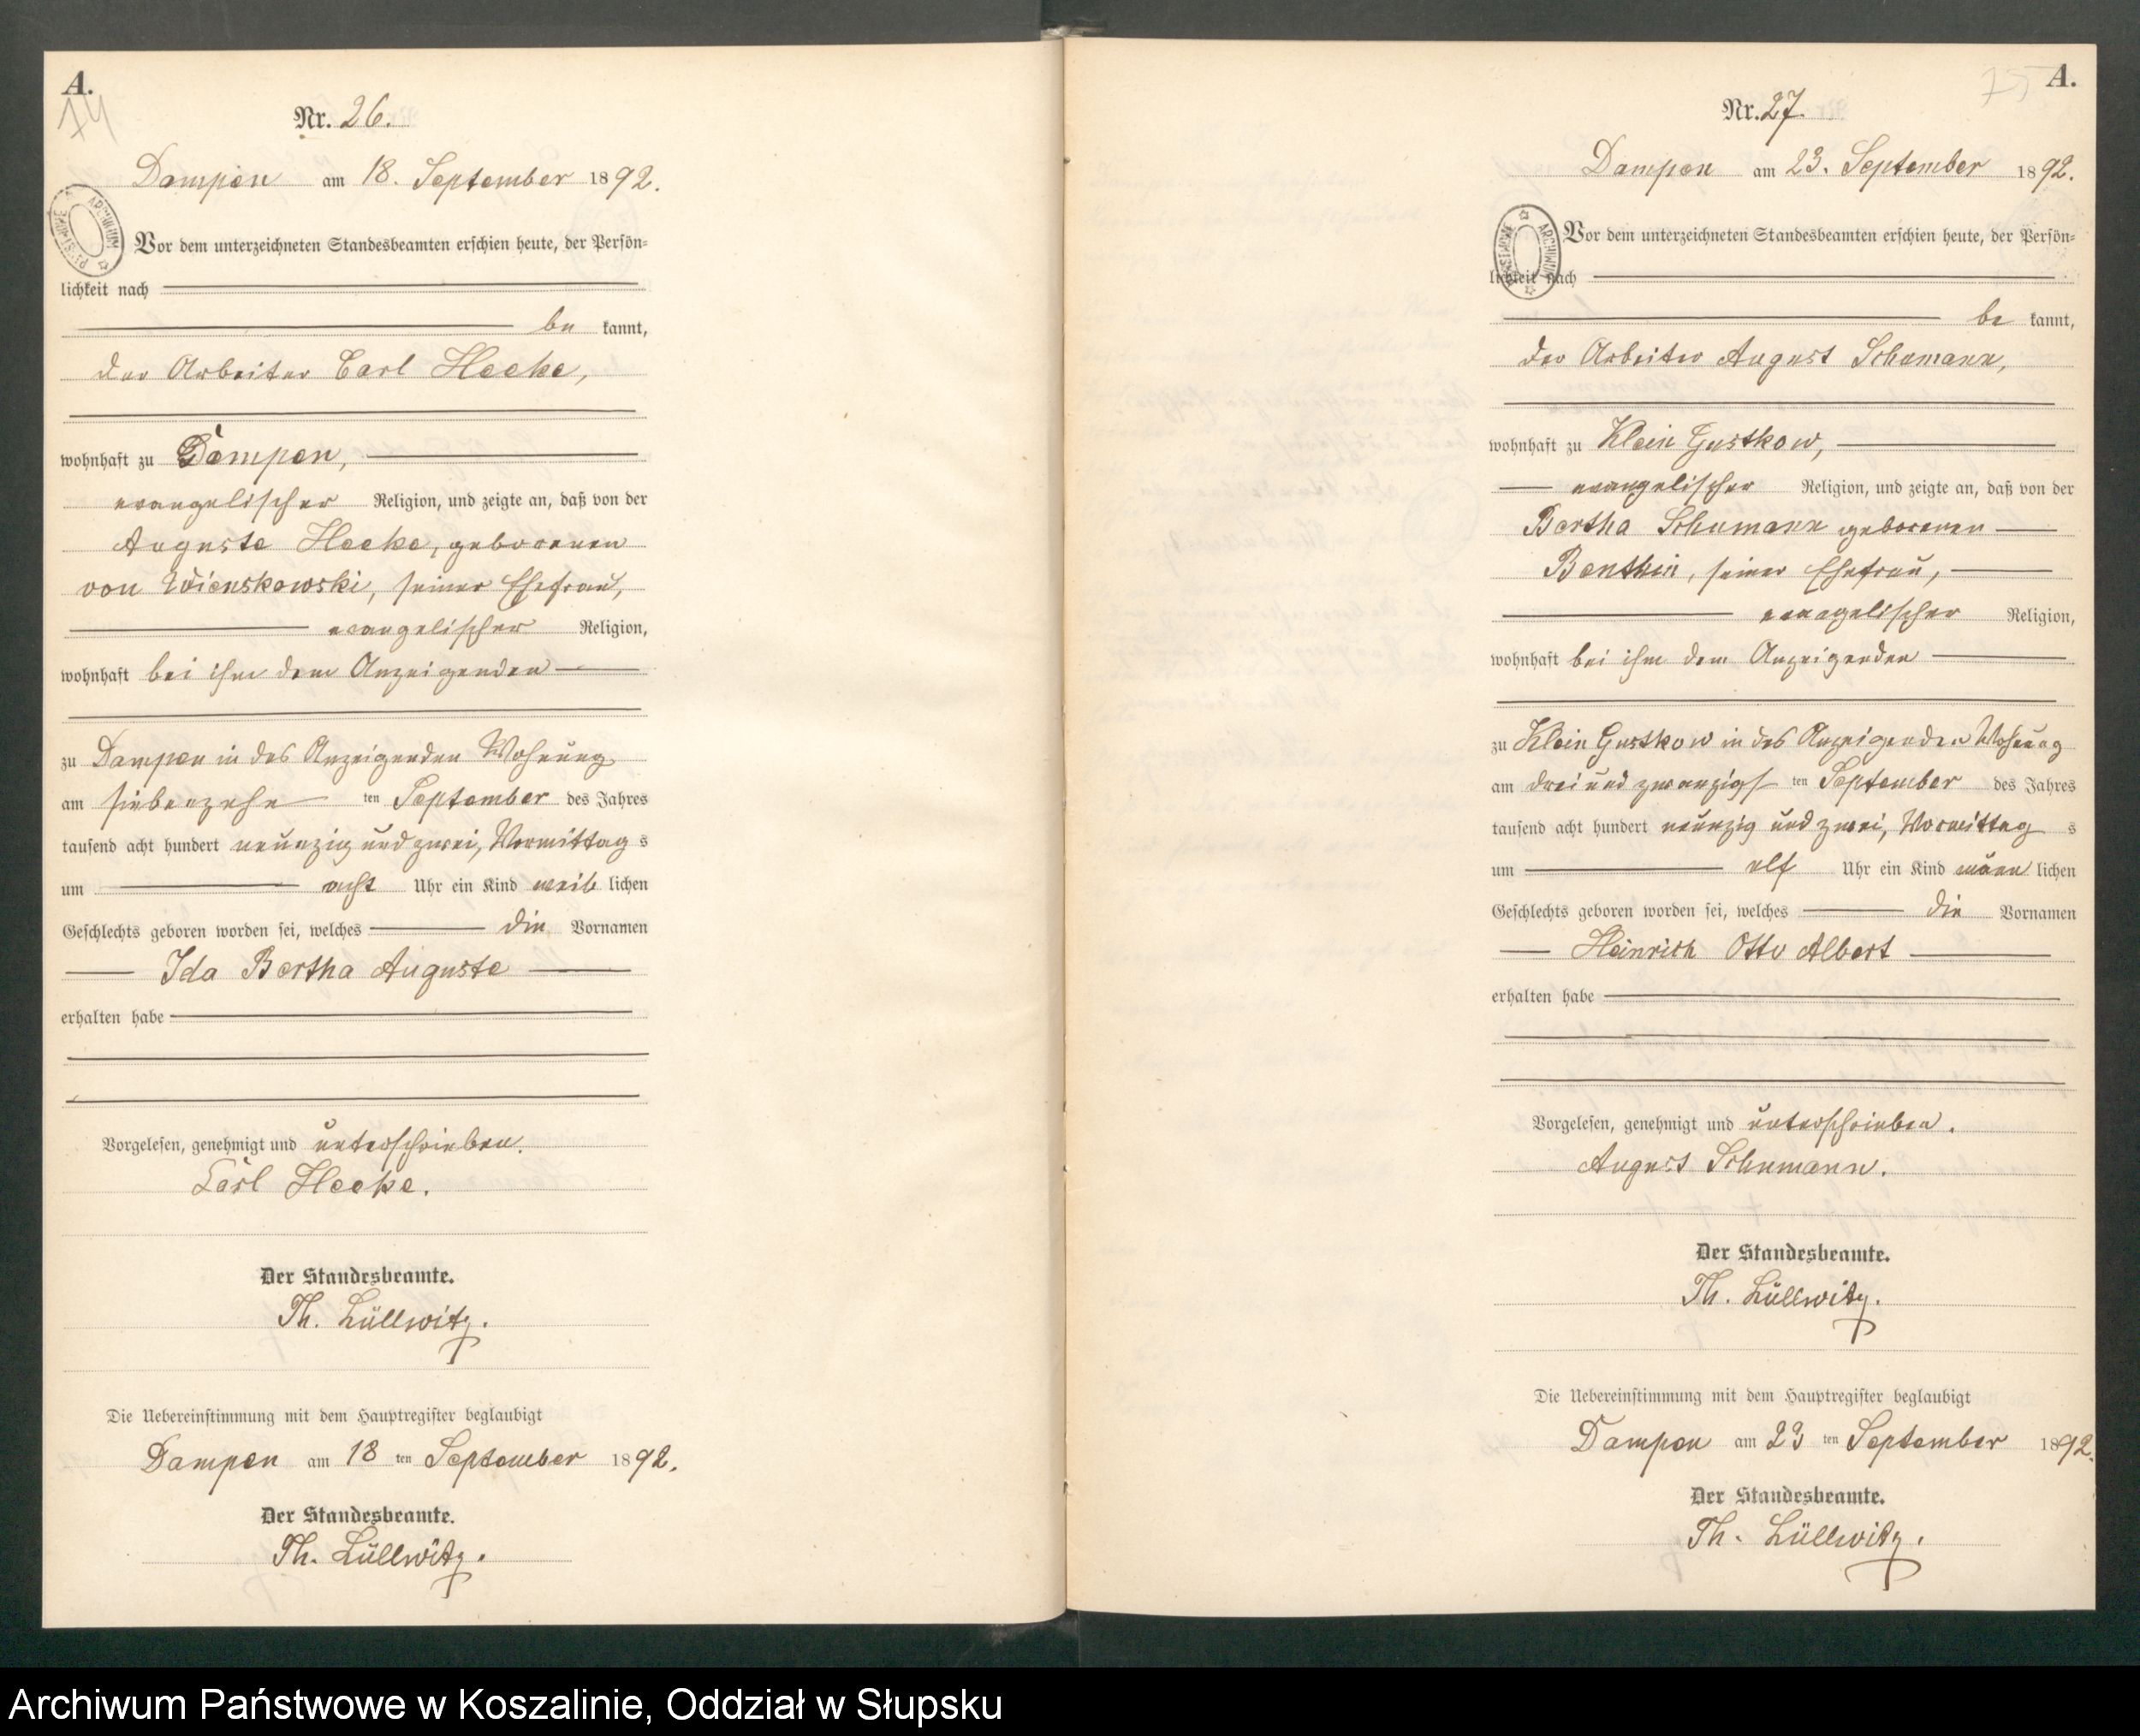 A.
74
Nr. 26.
Dampen am 18. September 1892.
ARCHIWUM PAŃSTWOWE
Vor dem unterzeichneten Standesbeamten erschien heute, der Persön=
lichkeit nach
be kannt,
der Arbeiter Carl Heeke,
wohnhaft zu Dampen,
evangelischer Religion, und zeigte an, daß von der
Auguste Heeke, geborenen
von Wienskowski, seiner Ehefrau,
evangelischer Religion,
wohnhaft bei ihm dem Anzeigenden
zu Dampen in des Anzeigenden Wohnung
am siebenzehn ten September des Jahres
tausend acht hundert neunzig und zwei, Vormittag s
um acht Uhr ein Kind weib lichen
Geschlechts geboren worden sei, welches die Vornamen
Ida Bertha Auguste
erhalten habe
Vorgelesen, genehmigt und unterschrieben.
Carl Heeke.
Der Standesbeamte.
Th. Lüllwitz.
Die Uebereinstimmung mit dem Hauptregister beglaubigt
Dampen am 18 ten September 1892.
Der Standesbeamte.
Th. Lüllwitz.
75
A.
Nr. 27.
Dampen am 23. September 1892.
ARCHIWUM PAŃSTWOWE
Vor dem unterzeichneten Standesbeamten erschien heute, der Persön=
lichkeit nach
be kannt,
der Arbeiter August Schumann,
wohnhaft zu Klein Gustkow,
evangelischer Religion, und zeigte an, daß von der
Bertha Schumann geborenen
Benthin, seiner Ehefrau,
evangelischer Religion,
wohnhaft bei ihm dem Anzeigenden
zu Klein Gustkow in des Anzeigenden Wohnung
am drei und zwanzigs ten September des Jahres
tausend acht hundert neunzig und zwei, Vormittag s
um elf Uhr ein Kind männ lichen
Geschlechts geboren worden sei, welches die Vornamen
Heinrich Otto Albert
erhalten habe
Vorgelesen, genehmigt und unterschrieben.
August Schumann.
Der Standesbeamte.
Th. Lüllwitz.
Die Uebereinstimmung mit dem Hauptregister beglaubigt
Dampen am 23 ten September 1892.
Der Standesbeamte.
Th. Lüllwitz.
Archiwum Państwowe w Koszalinie, Oddział w Słupsku